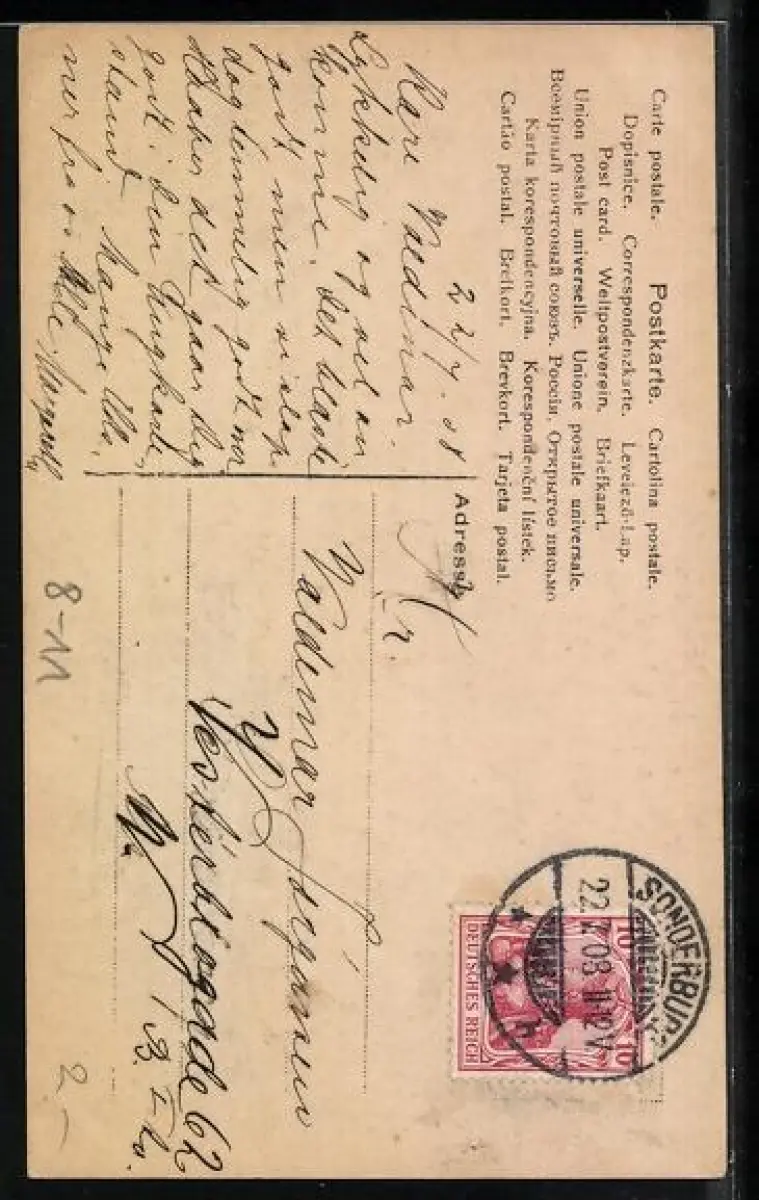 Carte postale. Postkarte. Cartolina postale.
Dopisnice. Correspondenzkarte. Levelező-Lap.
Post card. Weltpostverein. Briefkaart.
Union postale universelle. Unione postale universale.
Всемірный почтовый союзъ. Россія. Открытое письмо
Karta korespondencyjna. Korespondenční lístek.
Cartão postal. Brefkort. Brevkort. Tarjeta postal.
22/7. 08
Kære Valdemar.
Lykkelig og vel an
komme. Det
godt men vi
dog temmelig godt
Haaber det gaar dig
godt i din
stand. Mange Hils.
ner fra vi Alle.
Adresse
Hr.
Valdemar
Vesterbrogade 62
SONDERBURG
22.7.08 11-12 V
h
10 10
DEUTSCHES REICH
8-11
2.-